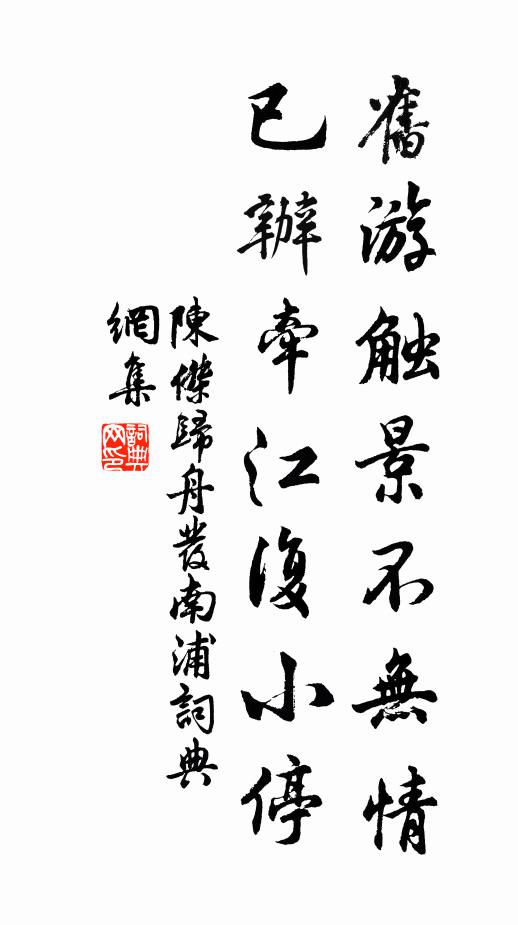 舊游触景不無情
已辦牽江復小停
陳傑歸舟發南浦詞典
網集
詞典
网印